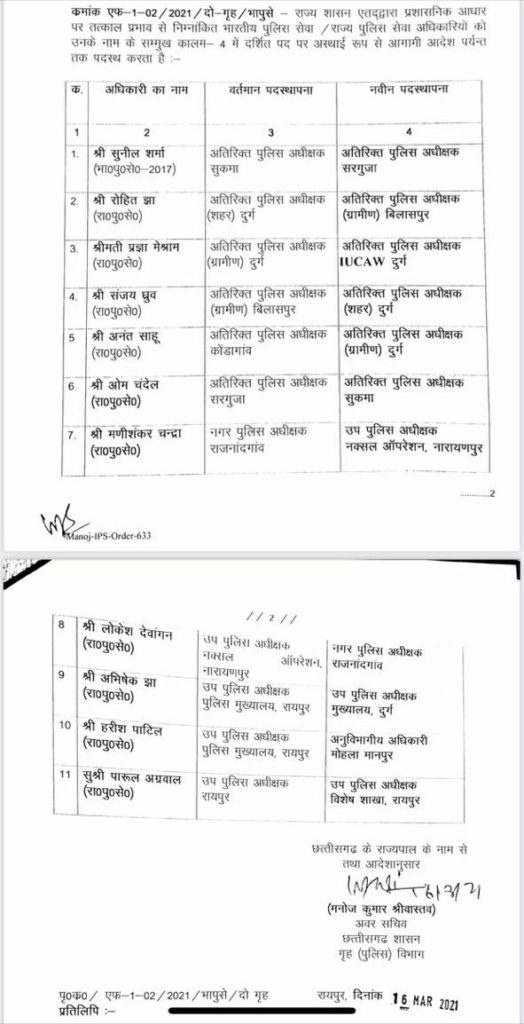 कमांक एफ–1–02/2021/दो–गृह/भापुसे – राज्य शासन एतद्द्वारा प्रशासनिक आधार
पर तत्काल प्रभाव से निम्नांकित भारतीय पुलिस सेवा /राज्य पुलिस सेवा अधिकारियों को
उनके नाम के सम्मुख कालम– 4 में दर्शित पद पर अस्थाई रूप से आगामी आदेश पर्यन्त
तक पदस्थ करता है :–
क. अधिकारी का नाम वर्तमान पदस्थापना नवीन पदस्थापना
1 2 3 4
1. श्री सुनील शर्मा अतिरिक्त पुलिस अधीक्षक अतिरिक्त पुलिस अधीक्षक
(भा0पु0से0–2017) सुकमा सरगुजा
2. श्री रोहित झा अतिरिक्त पुलिस अधीक्षक अतिरिक्त पुलिस अधीक्षक
(रा0पु0से0) (शहर) दुर्ग (ग्रामीण) बिलासपुर
3. श्रीमती प्रज्ञा मेश्राम अतिरिक्त पुलिस अधीक्षक अतिरिक्त पुलिस अधीक्षक
(रा0पु0से0) (ग्रामीण) दुर्ग IUCAW दुर्ग
4. श्री संजय ध्रुव अतिरिक्त पुलिस अधीक्षक अतिरिक्त पुलिस अधीक्षक
(रा0पु0से0) (ग्रामीण) बिलासपुर (शहर) दुर्ग
5 श्री अनंत साहू अतिरिक्त पुलिस अधीक्षक अतिरिक्त पुलिस अधीक्षक
(रा0पु0से0) कोंडागांव (ग्रामीण) दुर्ग
6 श्री ओम चंदेल अतिरिक्त पुलिस अधीक्षक अतिरिक्त पुलिस अधीक्षक
(रा0पु0से0) सरगुजा सुकमा
7. श्री मणीशंकर चन्द्रा नगर पुलिस अधीक्षक उप पुलिस अधीक्षक
(रा0पु0से0) राजनांदगांव नक्सल ऑपरेशन, नारायणपुर
............2
Manoj-IPS-Order-633
//2//
8 श्री लोकेश देवांगन उप पुलिस अधीक्षक नगर पुलिस अधीक्षक
(रा0पु0से0) नक्सल ऑपरेशन, राजनांदगांव
नारायणपुर
9 श्री अभिषेक झा उप पुलिस अधीक्षक उप पुलिस अधीक्षक
(रा0पु0से0) पुलिस मुख्यालय, रायपुर मुख्यालय, दुर्ग
10 श्री हरीश पाटिल उप पुलिस अधीक्षक अनुविभागीय अधिकारी
(रा0पु0से0) पुलिस मुख्यालय, रायपुर मोहला मानपुर
11 सुश्री पारूल अग्रवाल उप पुलिस अधीक्षक उप पुलिस अधीक्षक
(रा0पु0से0) रायपुर विशेष शाखा, रायपुर
छत्तीसगढ के राज्यपाल के नाम से
तथा आदेशानुसार
(मनोज कुमार श्रीवास्तव)
अवर सचिव
छत्तीसगढ शासन
गृह (पुलिस) विभाग
पृ0क0/ एफ–1–02/2021/भापुसे/दो गृह रायपुर, दिनांक 16 MAR 2021
प्रतिलिपि :–